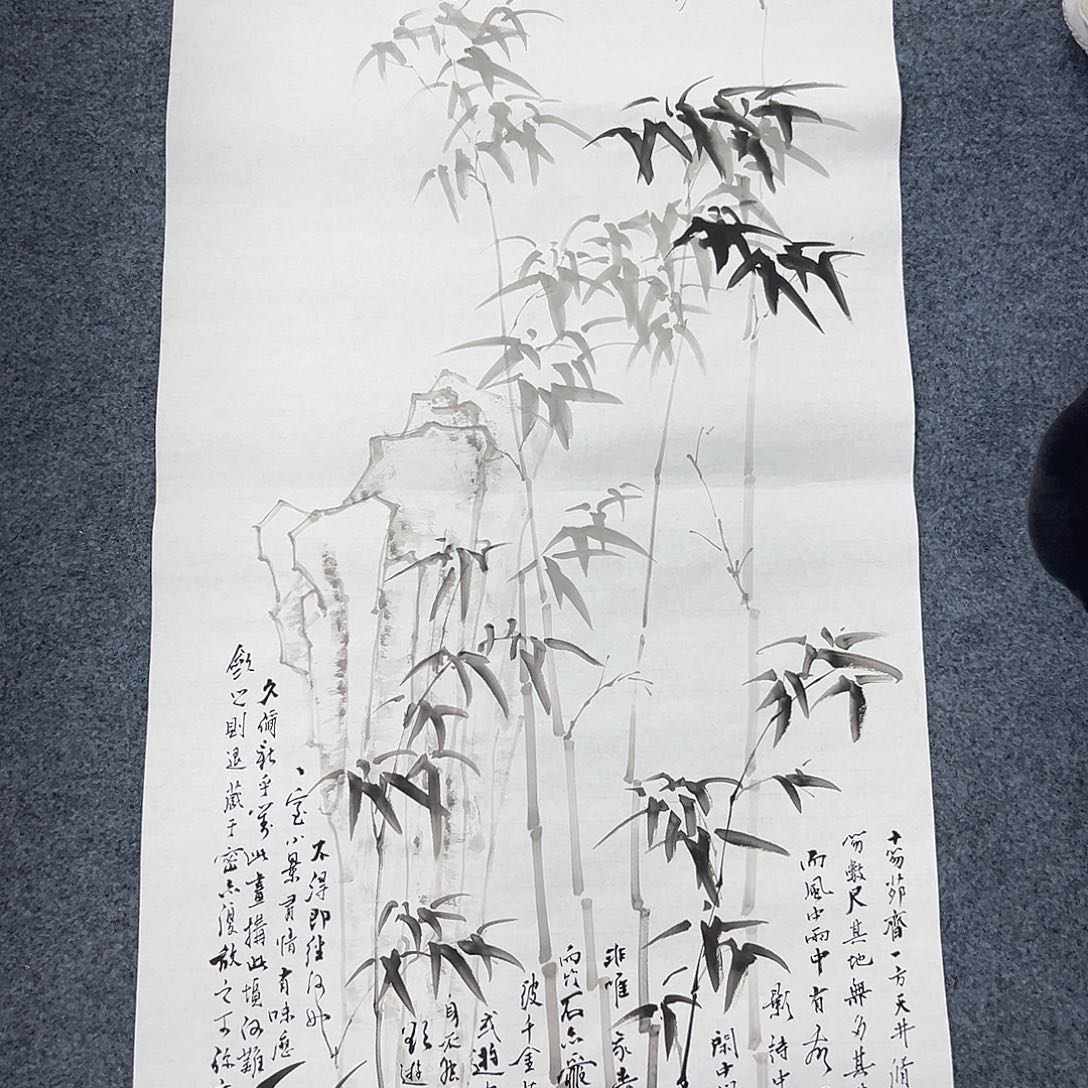 十笏茆齋一方天井脩
筍數尺其地無多其
而風中雨中有聲
影詩中
閑中
非唯我愛
竹石亦愛
彼千金
或遊
身不能
欲遊
不得即往何如
一室小景有情有味歷
久彌新乎對此畫構此境何難
斂之則退藏于密亦復放之可彌六